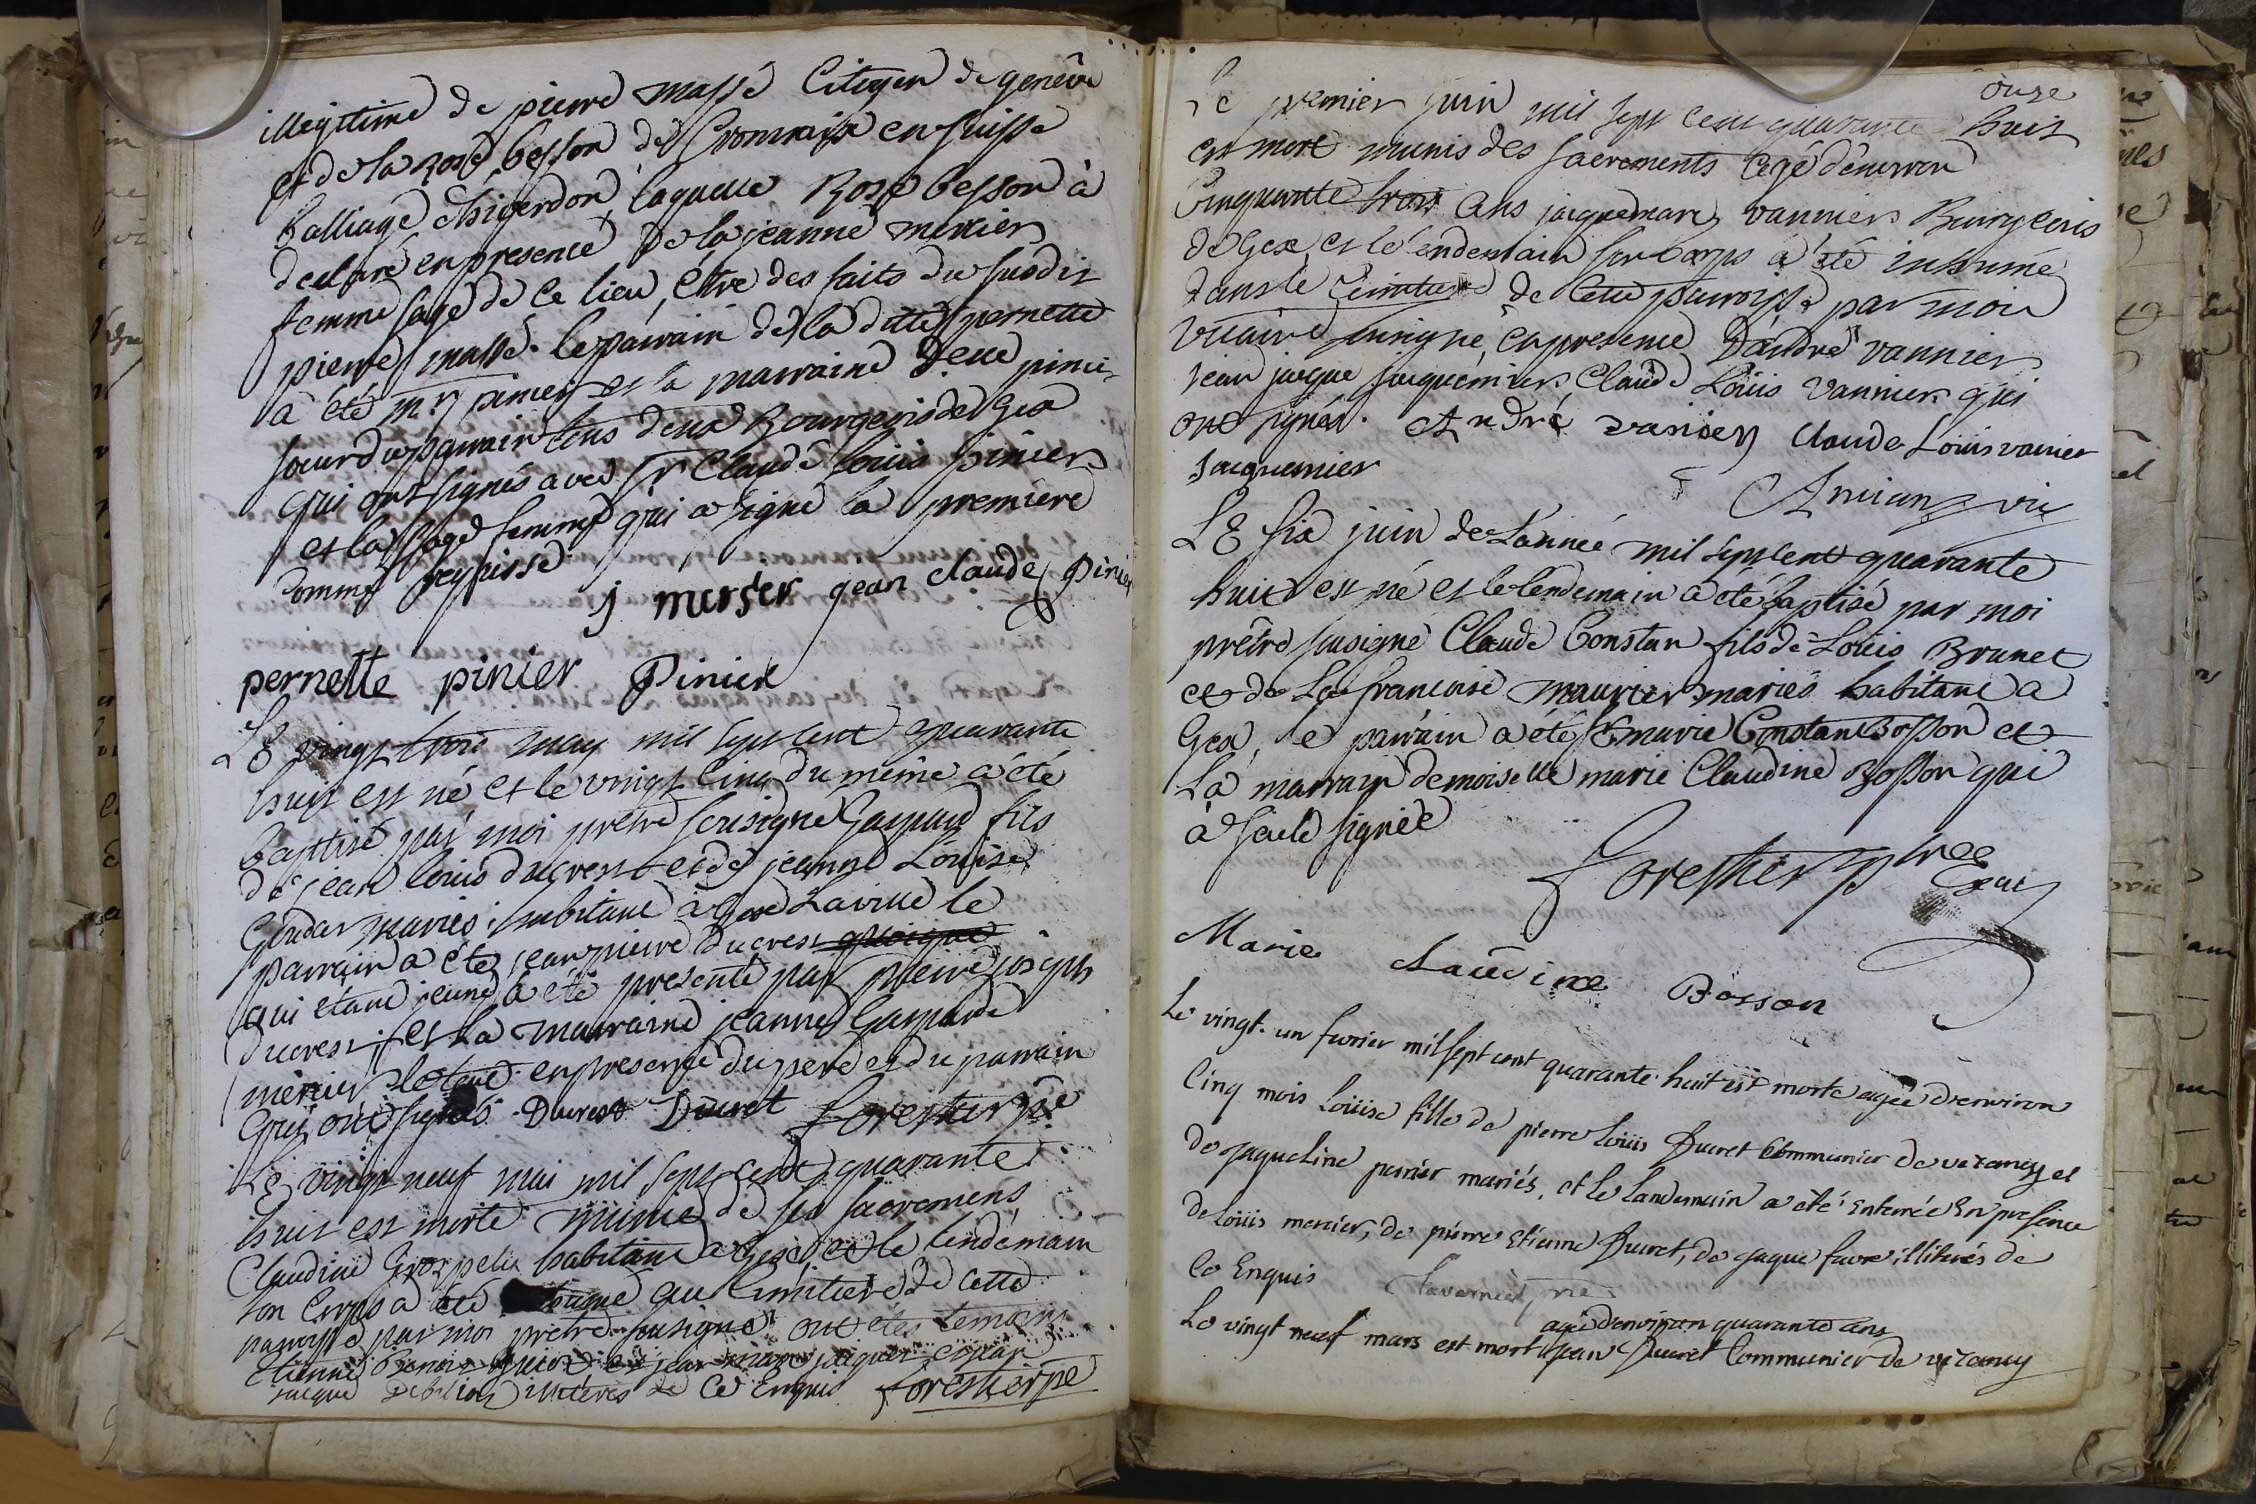 illegitime de pierre massé Citoyen de genêve
et de la Rose besson de Cronnaix en suisse
balliage laquelle Rose besson à
declaré en presence de la jeanne mercier
femme sage de ce lieu être des faits du susdit
pierre massé. le parrain de la ditte pernette
à été mr pinier et la marraine delle pinier
soeur du parrain tous deux Bourgeois de Gex
qui ont signés avec sr Claude Louis pinier
et la sage femme qui a signé la premiere
comme
j mersier jean claude Pinier
pernette pinier Pinier
LE vingt trois may mil sept cent quarante
huit est né et le vingt cinq du même a été
baptisé par moi prêtre sousigné Gaspard fils
de jean louis ducrest et de jeanne Louise
mariés habitant à Gex La ville le
parrain a été jean pierre ducrest quoique
qui étant jeune a été presenté par pierre joseph
ducrest et La marraine jeanne Gasparde
mercier en presence du pere et du parrain
qui ont signés Ducrest Ducret forestier ptre
LE vingt neuf mai mil sept cent quarante
huit est morte munie de ses sacremens
Claudine habitant a Gex, et le lendemain
son corps a été au cimitiere de cette
paroisse par moi prêtre sousigné ont étés temoins
Etienne Benoit jean
jacque illiterés de Ce Enquis forestier ptre
onze
Le premier juin mil sept cent quarante huit
est mort munis des sacrements agé d'environ
Cinquante trois ans jaquemar vannier Bourgeois
de Gex et le lendemain son corps a été inhumé
dans le cimitiere de cette paroisse par moi
vicaire sousigné en presence d'andré vannier
jean jaque jaquemier Claude Louis vannier qui
ont signés. André vanier Claude Louis vanier
jacquemier
vic
LE six juin de L'année mil sept cent quarante
huit est né et le lendemain a été baptisé par moi
prêtre susigné Claude Constan fils de Louis Brunet
et de La françoise maurier mariés habitant a
Gex, le parrain a été Sr marie Constan Bosson et
La marrain demoiselle marie Claudine Bosson qui
à seule signée
forestier ptre
Marie Claudine Bosson
Le vingt-un fevrier mil sept cent quarante-huit est morte agée d'environ
Cinq mois Loüise fille de pierre loüis Ducret Communier de vezancy et
de jaqueline perrier mariés, et le landemain a été enterrée En presence
de loüis mercier, de pierre Etienne Ducret, de jaque favre, illiterés de
Ce Enquis
agé d'environ quarante ans
Le vingt neuf mars est mort jean Ducret Communier de vezancy